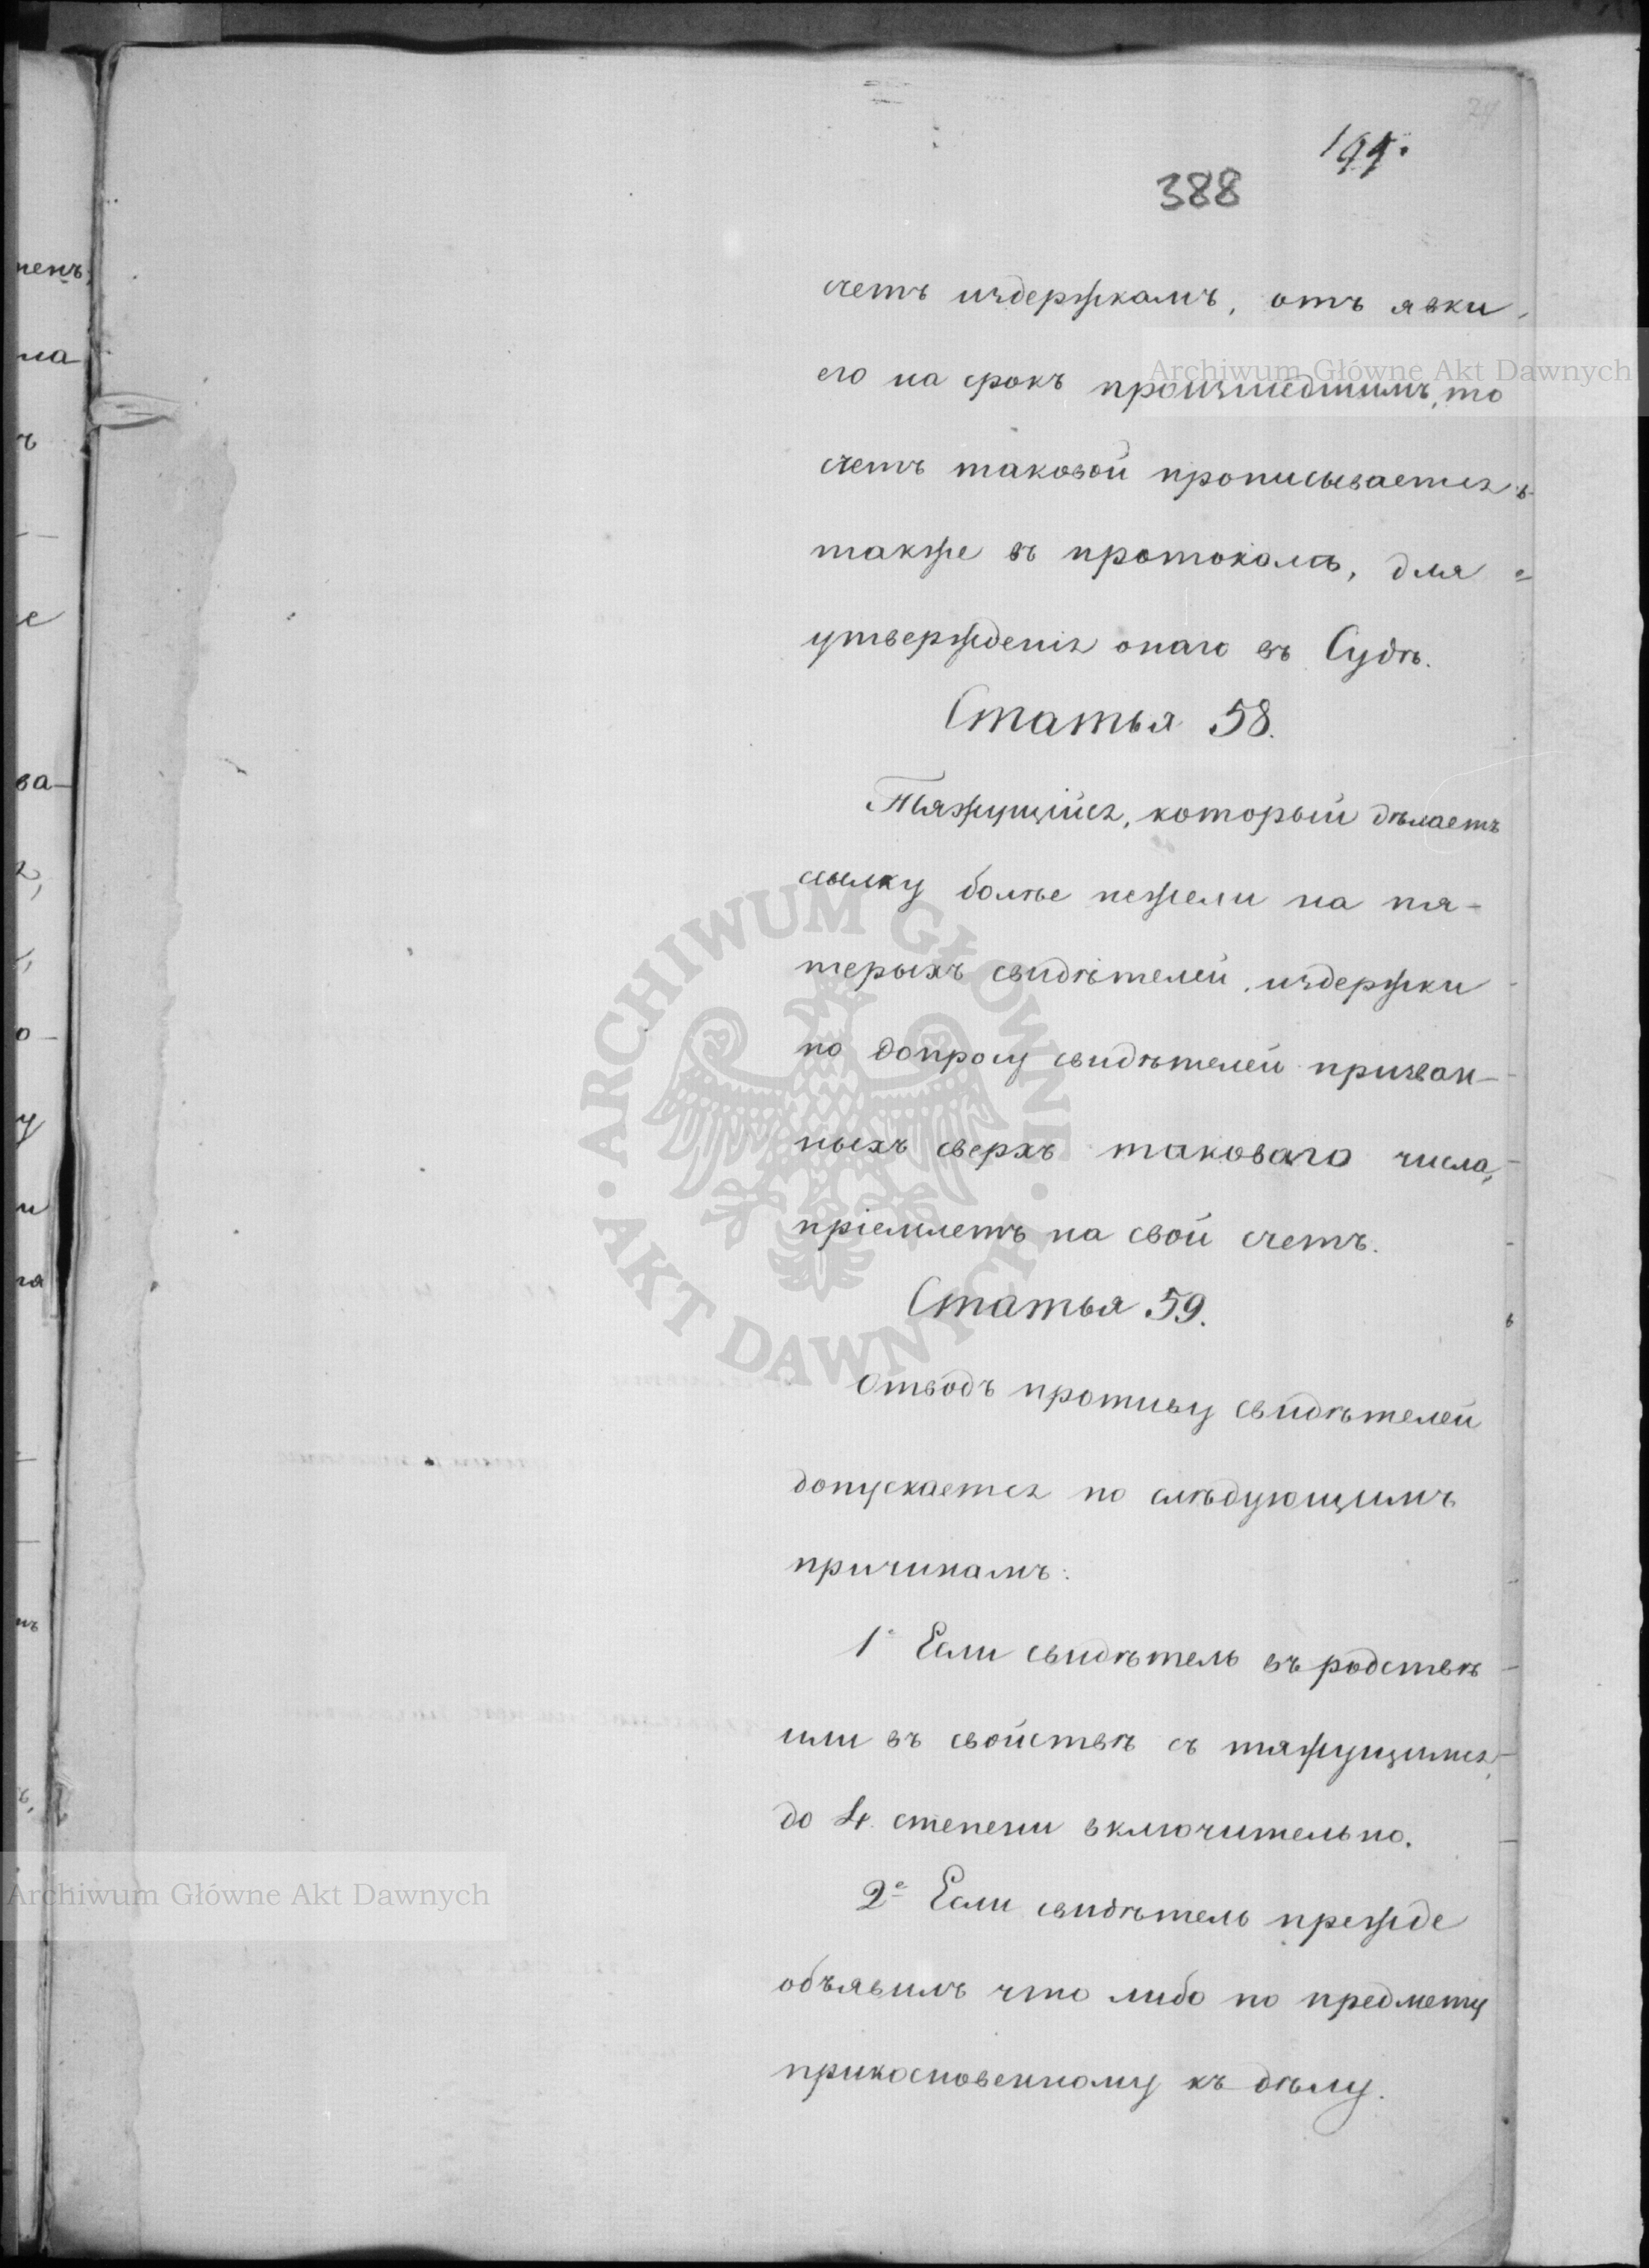 388
счетъ издержкамъ, отъ явки
его на срокъ произшедшимъ, то
счетъ таковой прописывается
также въ протоколѣ, для
утвержденія онаго въ Судѣ.
Статья 58.
Тяжущійся, который дѣлаетъ
ссылку болѣе нежели на пя-
терыхъ свидѣтелей, издержки
по допросу свидѣтелей призван-
ныхъ сверхъ таковаго числа,
пріемлетъ на свой счетъ.
Статья 59.
Отводъ противу свидѣтелей
допускается по слѣдующимъ
причинамъ:
1е Если свидѣтель въ родствѣ
или въ свойствѣ съ тяжущимся,
до 4. степени включительно.
2е Если свидѣтель прежде
объявилъ что либо по предмету
прикосновенному къ дѣлу.
Archiwum Główne Akt Dawnych
ARCHIWUM GŁÓWNE
AKT DAWNYCH
Archiwum Główne Akt Dawnych